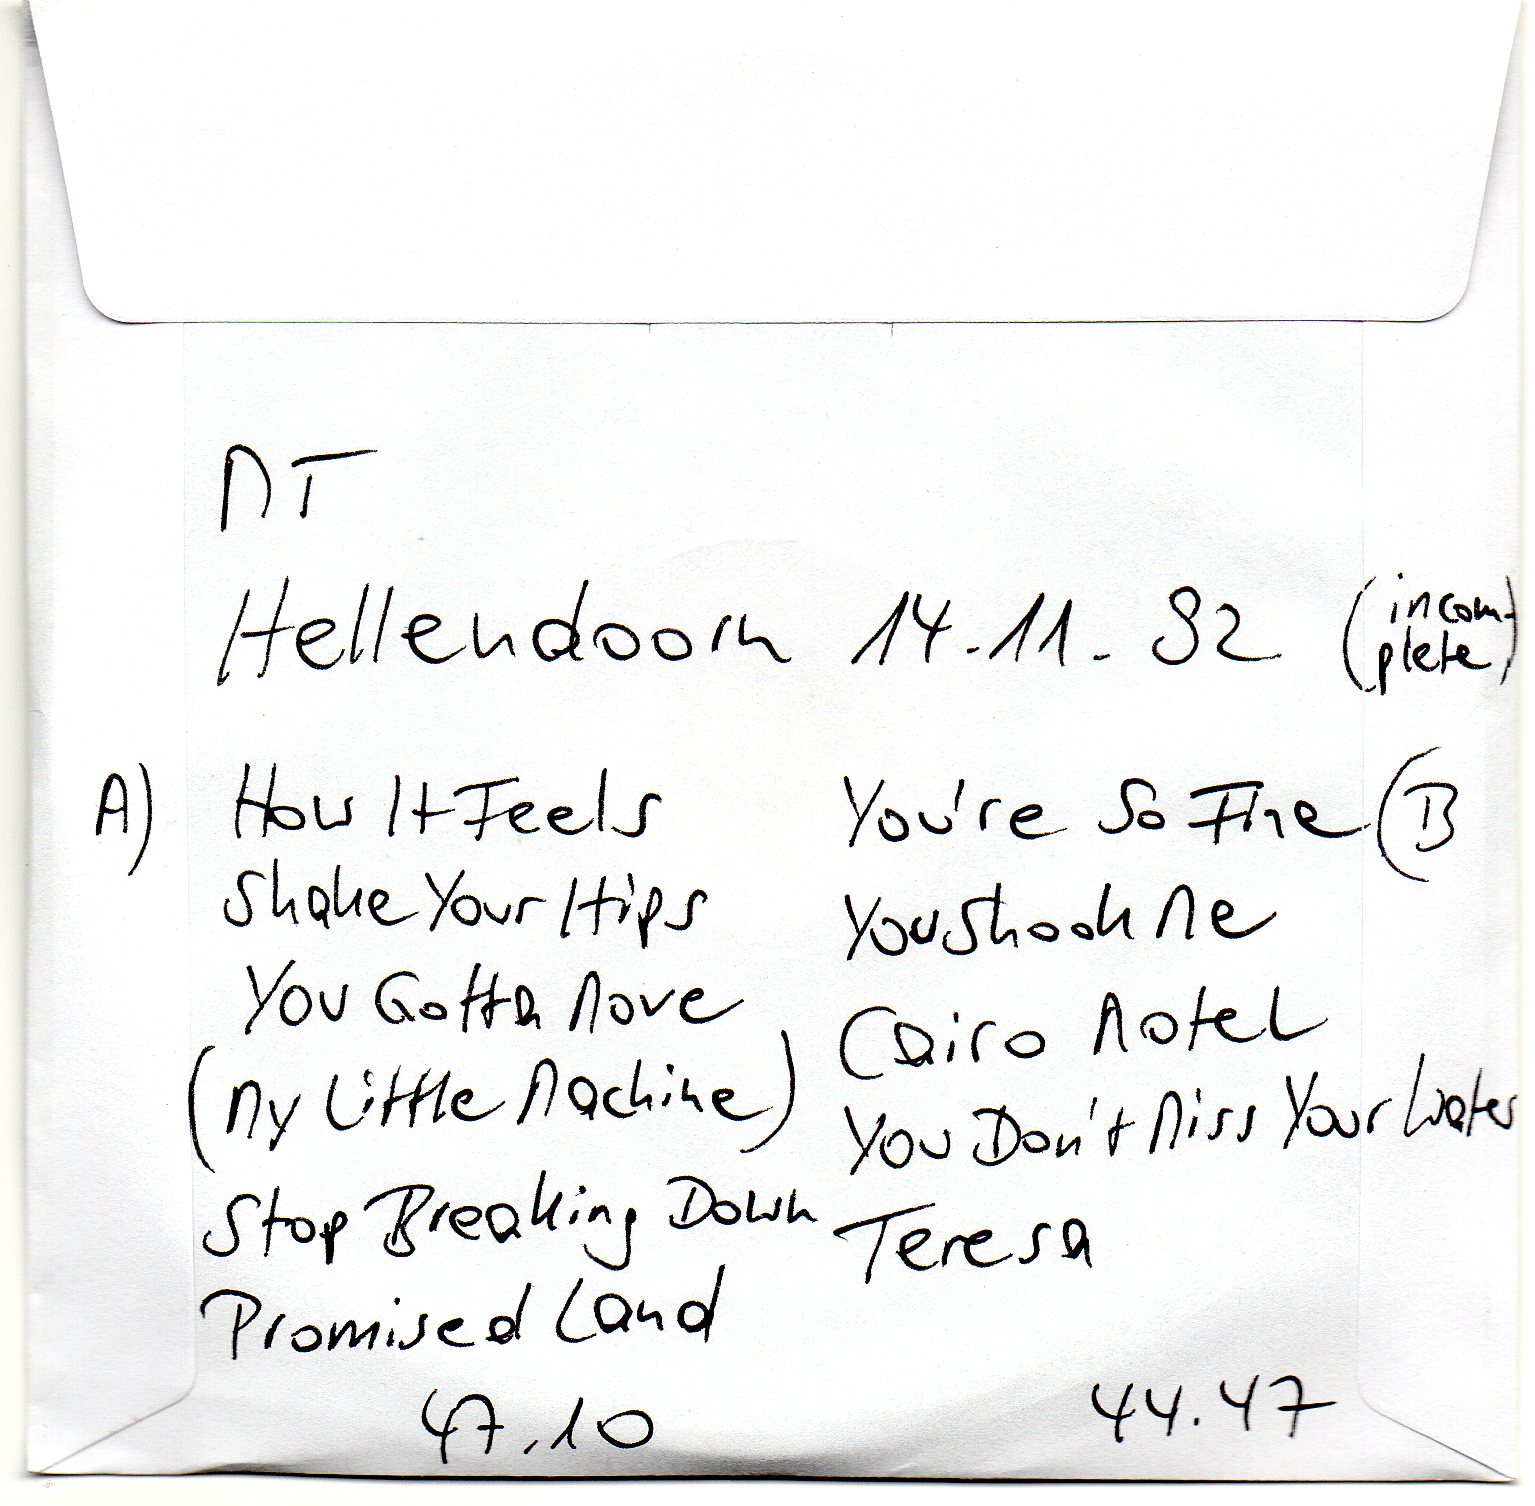 MT
Hellendoorn 14.11.92 (incom-
plete)
A) How It Feels
Shake Your Hips
You Gotta Move
(My Little Machine)
Stop Breaking Down
Promised Land
47.10
You're So Fine (B
You Shook Me
Cairo Motel
You Don't Miss Your Water
Teresa
44.47